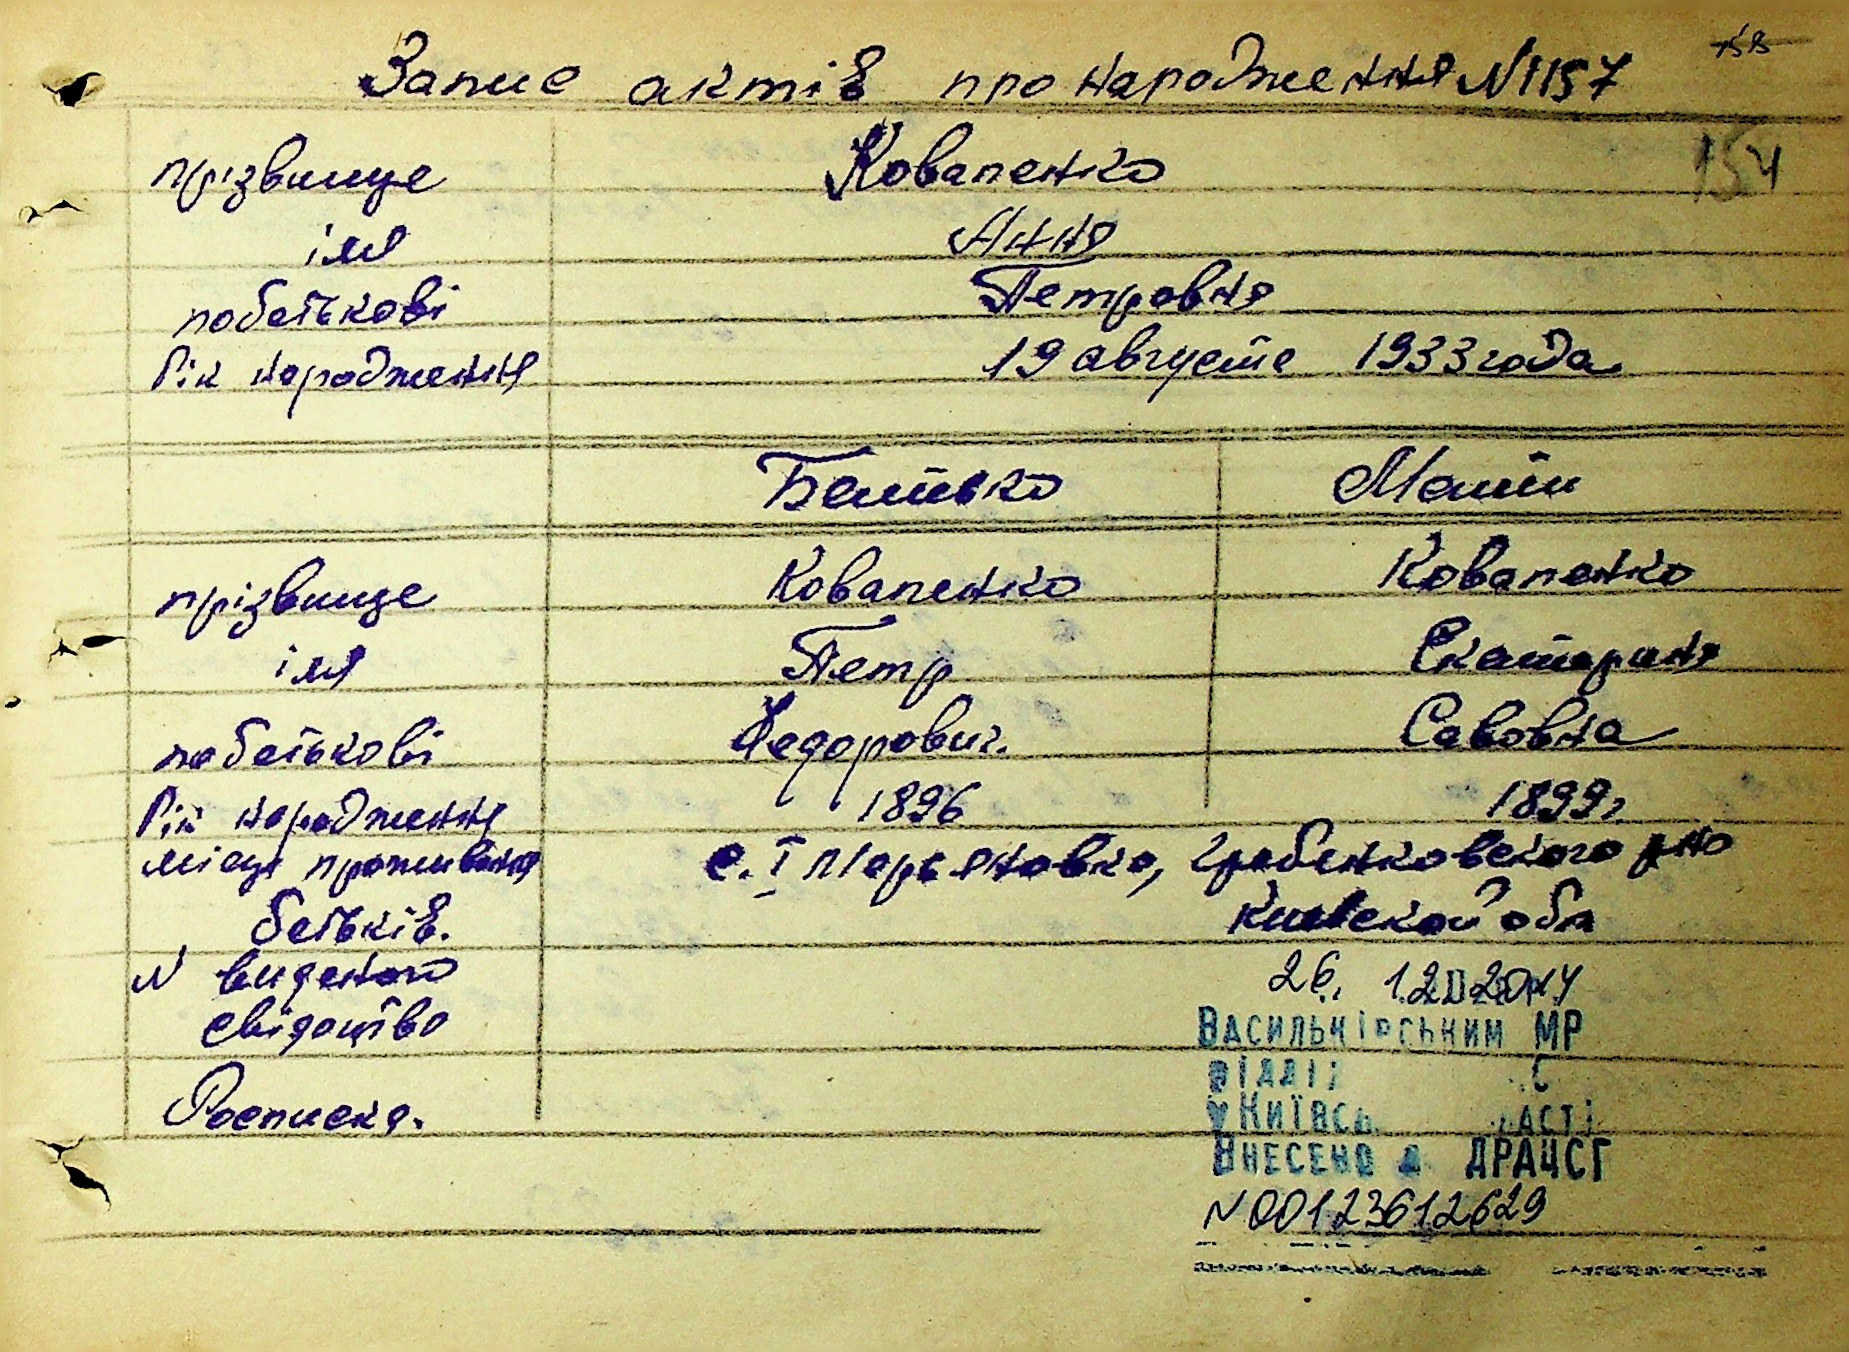 Запис актів про народження N 1157
154
прізвище Коваленко
імя Анна
побатькові Петровна
Рік народження 19 августа 1933 года.
Батько Мати
прізвище Коваленко Коваленко
імя Петр Екатерина
побатькові Федорович. Савовна
Рік народження 1896 1899 г.
місце проживання с. І Марьяновка, Гребенковского р-но
батьків. Киевской обл
N виданого 26. 12 2014
свідоцтво ВАСИЛЬКІВСЬКИМ МР
У КИЇВСЬ АСТІ
Росписка. ВНЕСЕНО ДРАЦСГ
N 00123612629